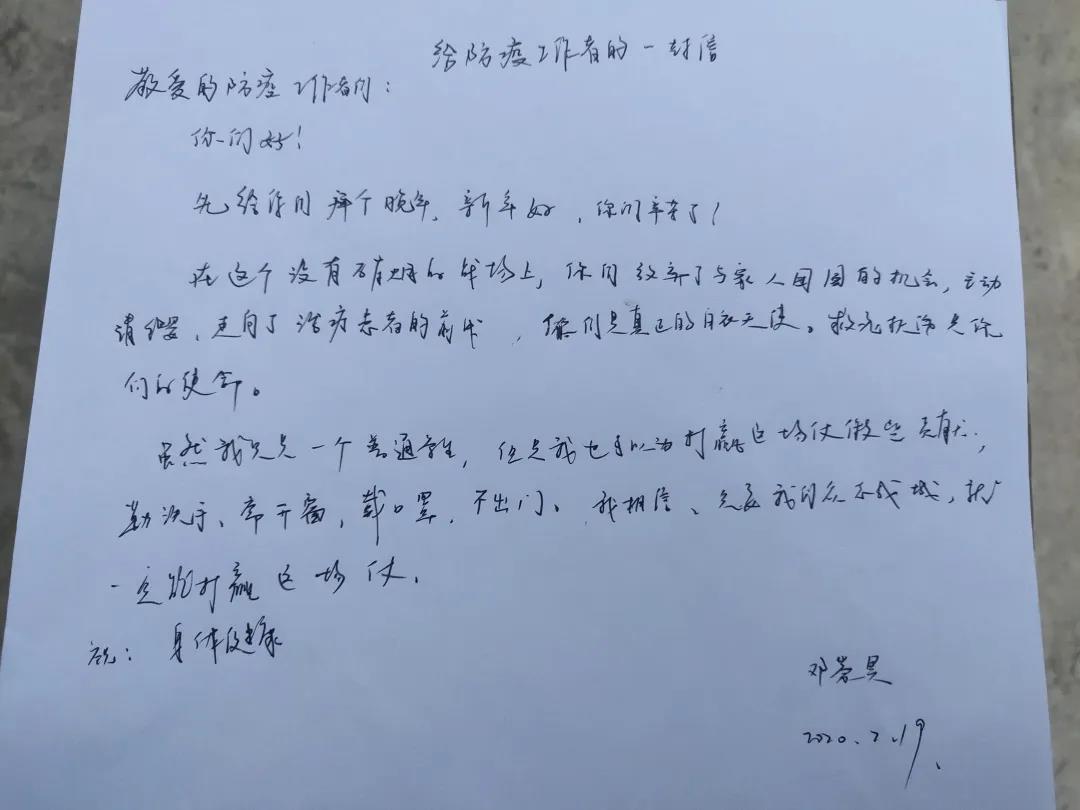 给防疫工作者的一封信
敬爱的防疫工作者们：
你们好！
先给你们拜个晚年，新年好，你们辛苦了！
在这个没有硝烟的战场上，你们放弃了与家人团圆的机会，主动
请缨，走向了治疗患者的前线，你们是真正的白衣天使。救死扶伤是你
们的使命。
虽然我只是一个普通学生，但是我也可以为打赢这场仗做些贡献，
勤洗手、常开窗，戴口罩，不出门。我相信、只要我们众志成城，就
一定能打赢这场仗。
祝：身体健康
邓
2020.2.19